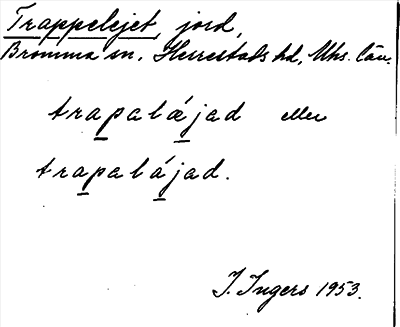 Trappelejet, jord,
Bromma sn, Herrestads hd, Mhs. län.
trapalǽjad eller
trapalájad.
I. Ingers 1953.